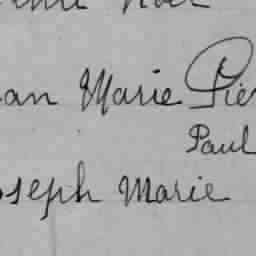 an Marie Pie
Paul
oseph Marie